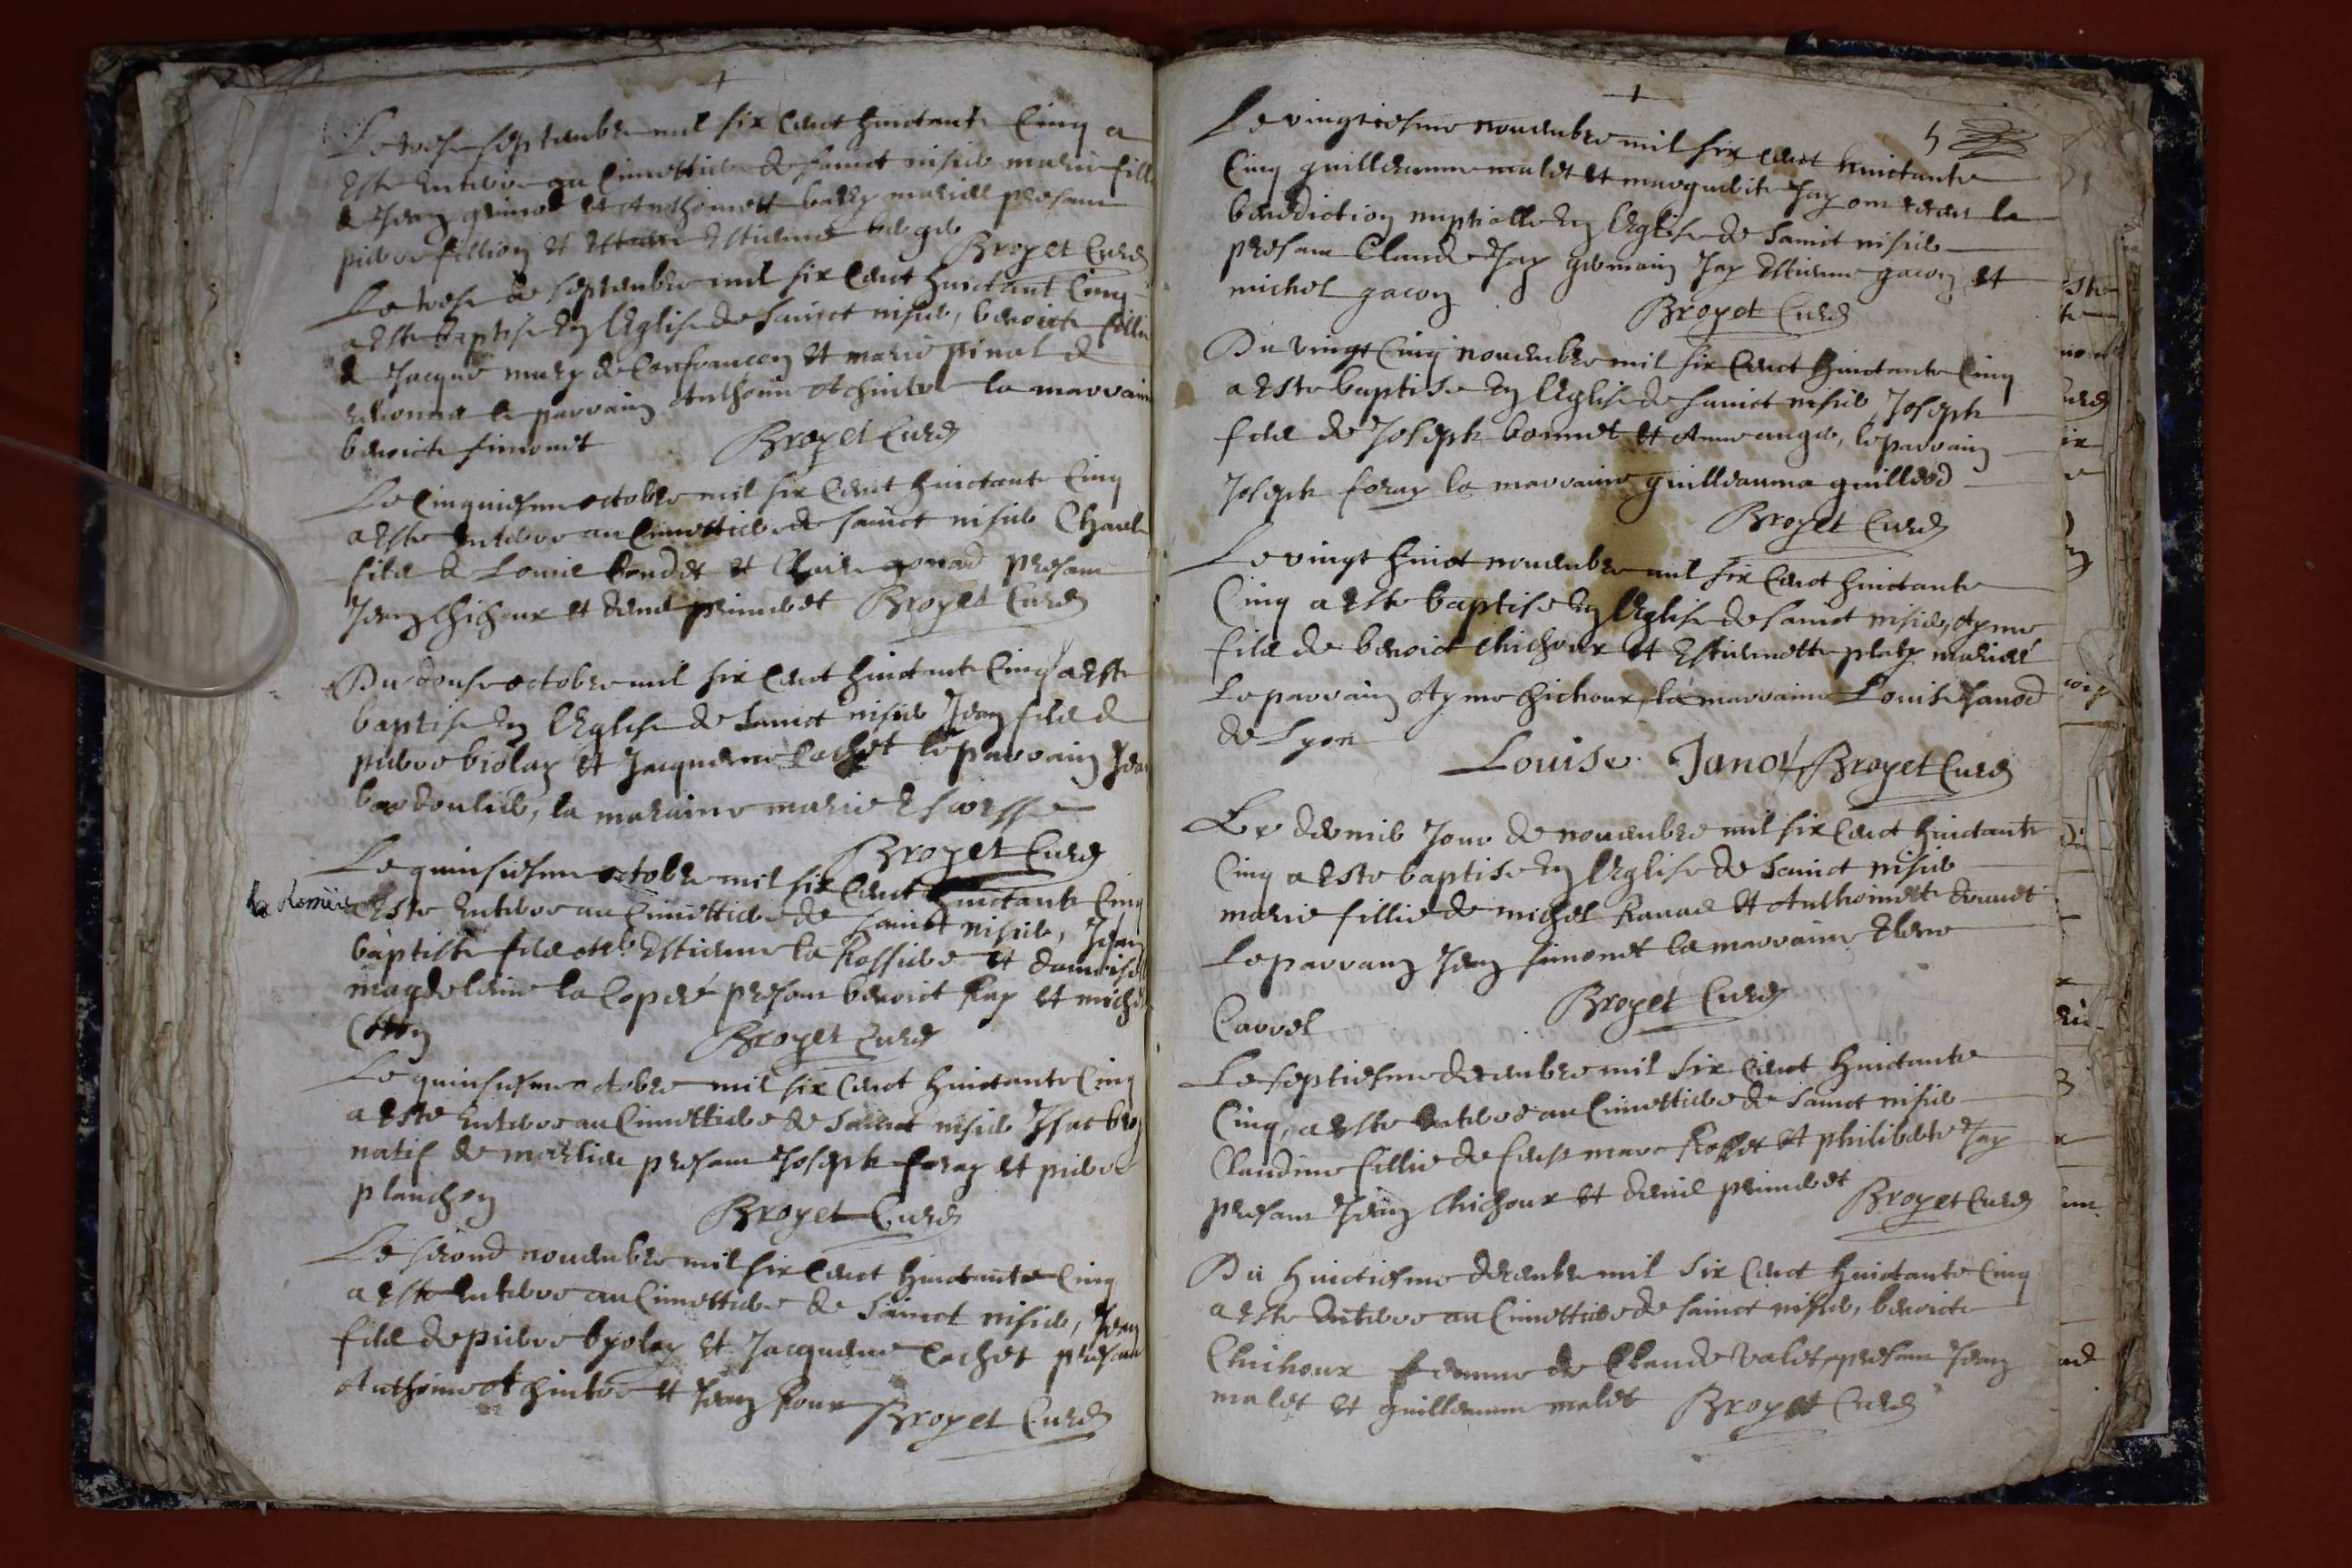 Le trese septembre mil six cent huictante cinq a
este enterre au cimettiere de sainct nisier marie fille
de Jean grimod et Anthoinette barry mariez presant
pierre fillion et Estienne berger
Broyet Curé
Le trese de septembre mil six cent huictant cinq
a este baptise en l'Eglise de sainct nisier, benoicte fillie
de Jacque mury de Confrancon et marie pinal de
le parrain Anthoine Achintre la marrain
benoicte simonet Broyet Curé
Le cinquiesme octobre mil six cent huictante cinq
a este enterre au cimettiere de sainct nisier Charle
filz de Louis boudet et Claire gonad presant
Jean Chichoux et denis perinet Broyet Curé
Du douse octobre mil six cent huictante cinq a este
baptise en l'Eglise de sainct nisier Jean filz de
pierre biolay et Jacqueme cochet le parrain Jean
bardoulier, la maraine marie
Broyet Curé
Le quinsiesme octobre mil six cent huictante cinq
la Rossiere
a este enterre au cimettiere de sainct nisier, Jean
baptiste filz Estienne la Rossiere et damoiselle
magdeleine la Coperé presant benoict Ray et michel
Broyet Curé
Le quinsiesme octobre mil six cent huictante cinq
a este enterre au cimettiere de sainct nisier Isac
natif de presant Joseph foray et pierre
planchon
Broyet Curé
Le second novembre mil six cent huictante cinq
a este enterre au cimettiere de sainct nisier, Jean
filz de pierre byolay et Jacqueme cochet presant
Anthoine Achintre et Jean Roux Broyet Curé
5
Le vingtiesme novembre mil six cent huictante
cinq guilleaume malet et marguerite Jay ont receu la
benediction nuptialle en l'Eglise de sainct nisier
presant Claude Jay germain Jay Estienne gacon et
michel gacon Broyet Curé
Du vingt cinq novembre mil six cent huictante cinq
a este baptise en l'Eglise de sainct nisier Joseph
filz de Joseph bonnet et Anne auger, le parrain
Joseph foray la marraine guilleauma guillerd
Broyet Curé
Le vingt huict novembre mil six cent huictante
cinq a este baptise en l'Eglise de sainct nisier, Ayme
filz de benoict chichoux et Estiennette platy mariez
le parrain Ayme chichoux, la marraine Louise Janod
de Lyon
Louise Janot Broyet Curé
Le dernier Jour de novembre mil six cent huictante
cinq a este baptise en l'Eglise de sainct nisier
marie fillie de michel Ravad et Anthoinette drevet
le parrain Jean simonet la marraine Elene
Carrel Broyet Curé
Le septiesme decembre mil six cent huictante
cinq, a este enterre au cimettiere de sainct nisier
Claudine fillie de marc Rosset et philiberte Jay
presant Jean chichoux et denis perinet Broyet Curé
Du huictiesme decembre mil six cent huictante cinq
a este enterre au cimettiere de sainct nisier, benoicte
Chichoux femme de Claude Valet, presant Jean
malet et guilleaume malet Broyet Curé